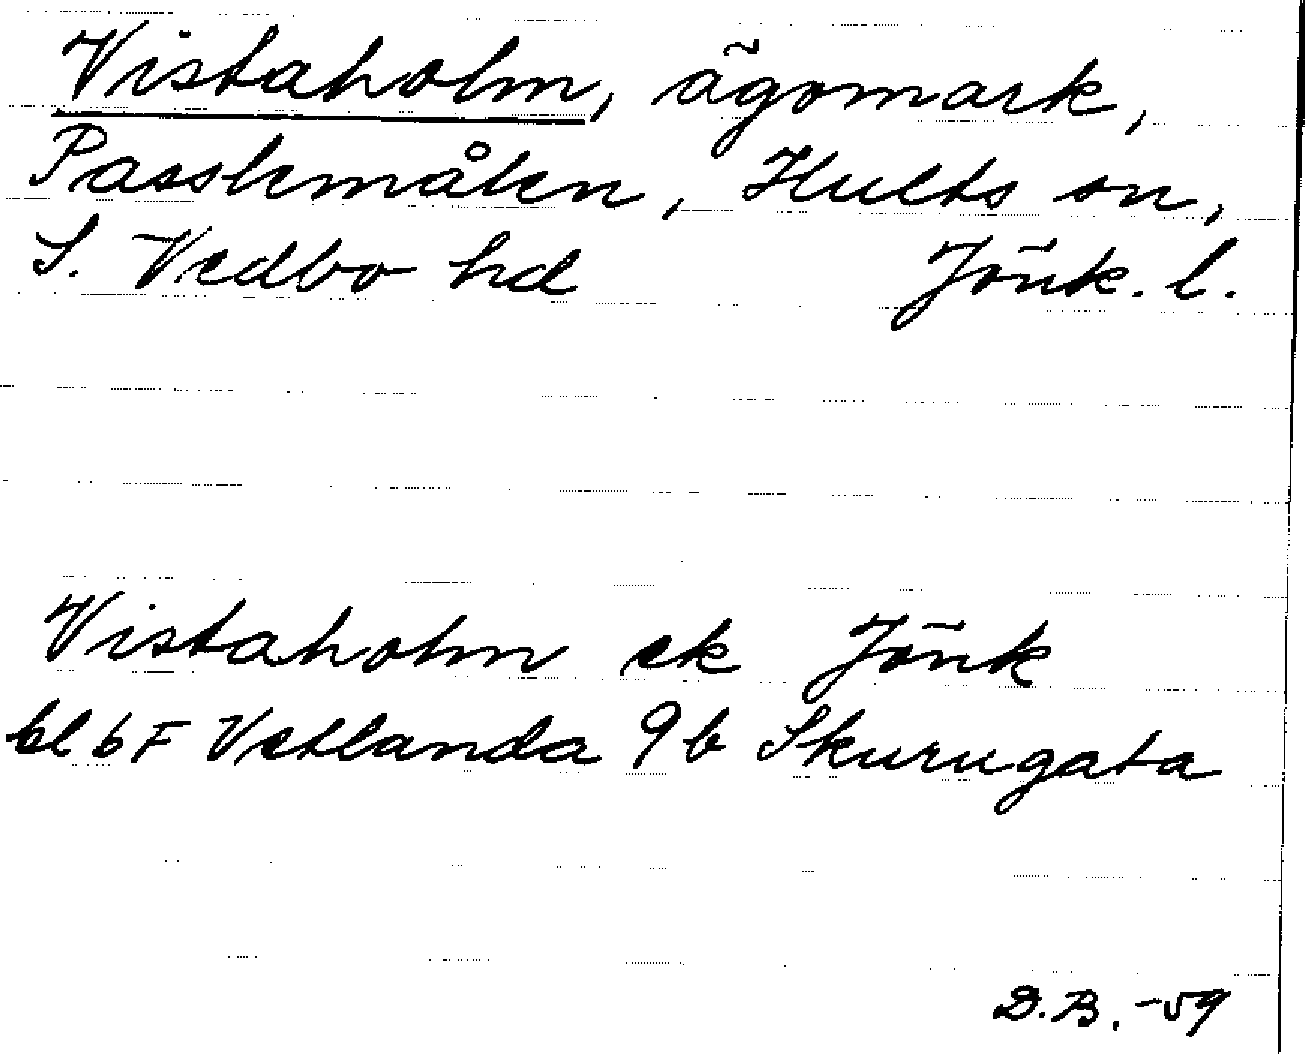 Vistaholm, ägomark,
Passlemålen, Hults sn,
S. Vedbo hd Jönk. l.
Vistaholm ek Jönk
bl 6 F Vetlanda 9b Skurugata
D.B. -59